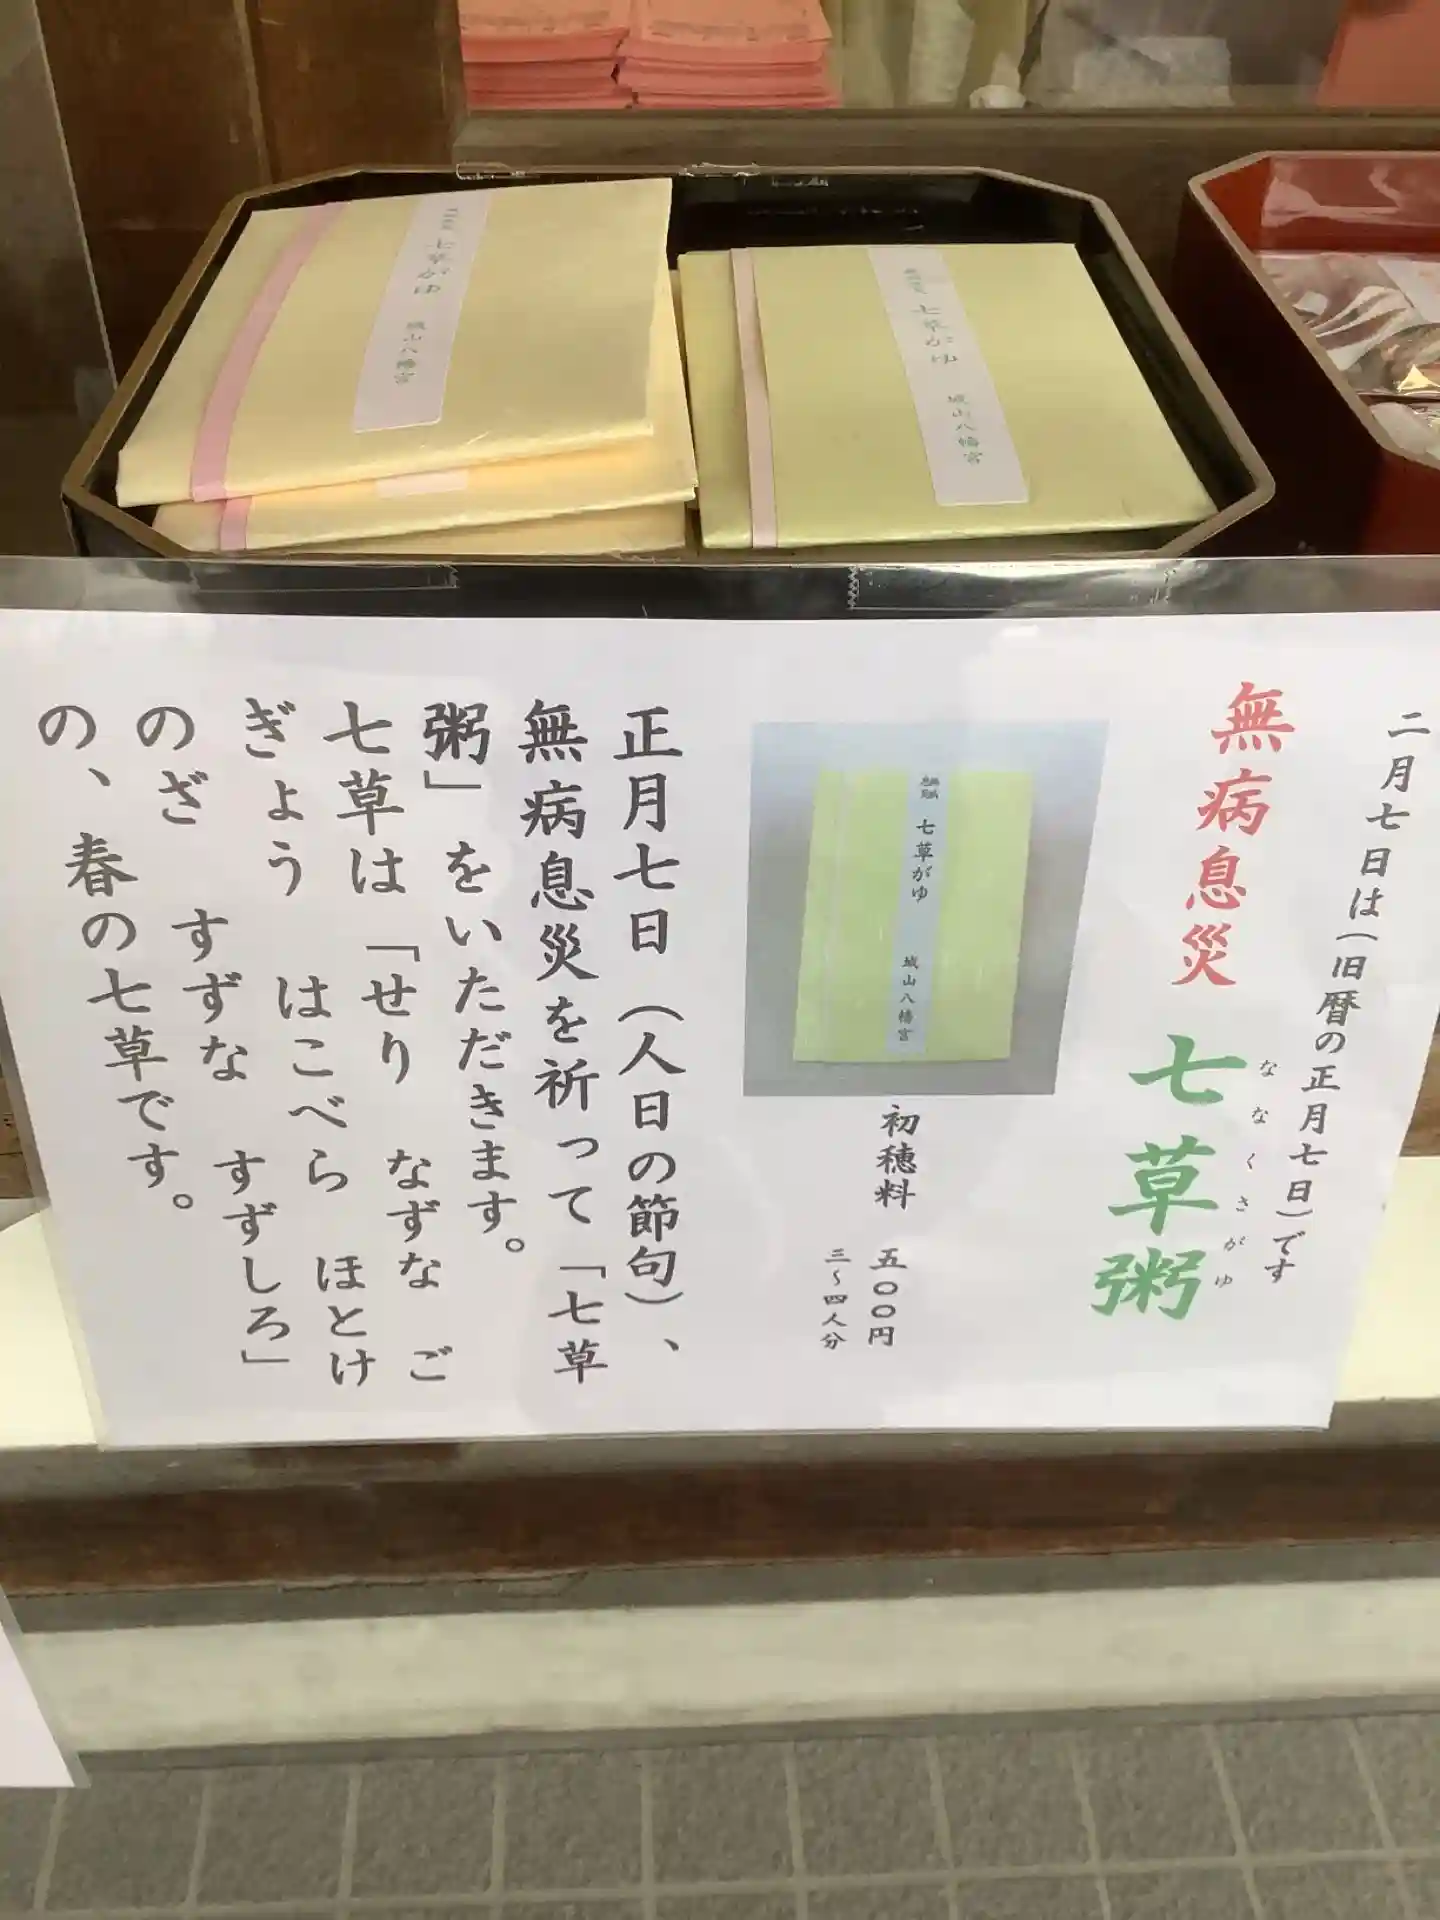 七草がゆ
城山八幡宮
七草がゆ
城山八幡宮
二月七日は(旧暦の正月七日)です
無病息災 七草粥
ななくさがゆ
七草がゆ 城山八幡宮
初穂料 五〇〇円
三〜四人分
正月七日(人日の節句)、
無病息災を祈って「七草
粥」をいただきます。
七草は「せり なずな ご
ぎょう はこべら ほとけ
のざ すずな すずしろ」
の、春の七草です。